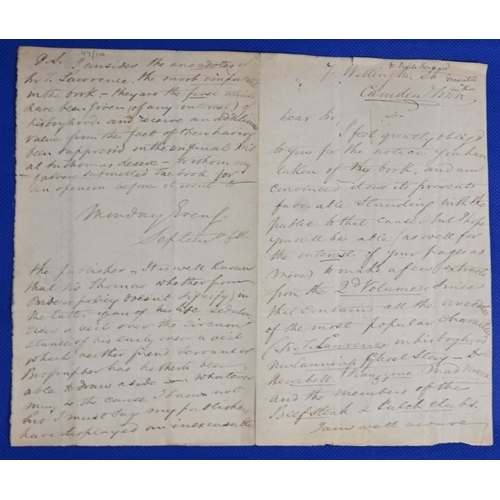 7 Wellington St
Camden Town
Dear Sir
I feel greatly oblig'd
to you for the notice you have
taken of this book, and am
convinced it owes its present
favorable standing with the
public to that cause but I hope
you will be able (as well for
the interest of your pages as
mine) to make a few extracts
from the 2d Volume since
that contains all the anecdotes
of the most popular characters
(Sir T. Lawrence in his boyhood
Mr Canning Ghost Story Dr
Herschell
and the members of the
Beefsteak & Catch clubs.
I am well aware
P.S. I consider the anecdotes of
Sir T. Lawrence, the most
in the book they are the first which
have been given (of any interest) of
his boyhood and receive an additional
value from the fact of their having
been suppress'd in the original
Sir Thomas to whom my
submitted the book for
an opinion before it went to
Monday Eveng.
Septembr 5th
the publisher It is well known
that Sir Thomas whether from
or policy doesn't signify) in
the latter years of his life let down
a veil over the circum
stances of his early a veil
which neither friend servant or
Biographer has hitherto been
able to draw aside whatever
may be the cause I know not
but I must say my publishers
have displayed an inexcusable